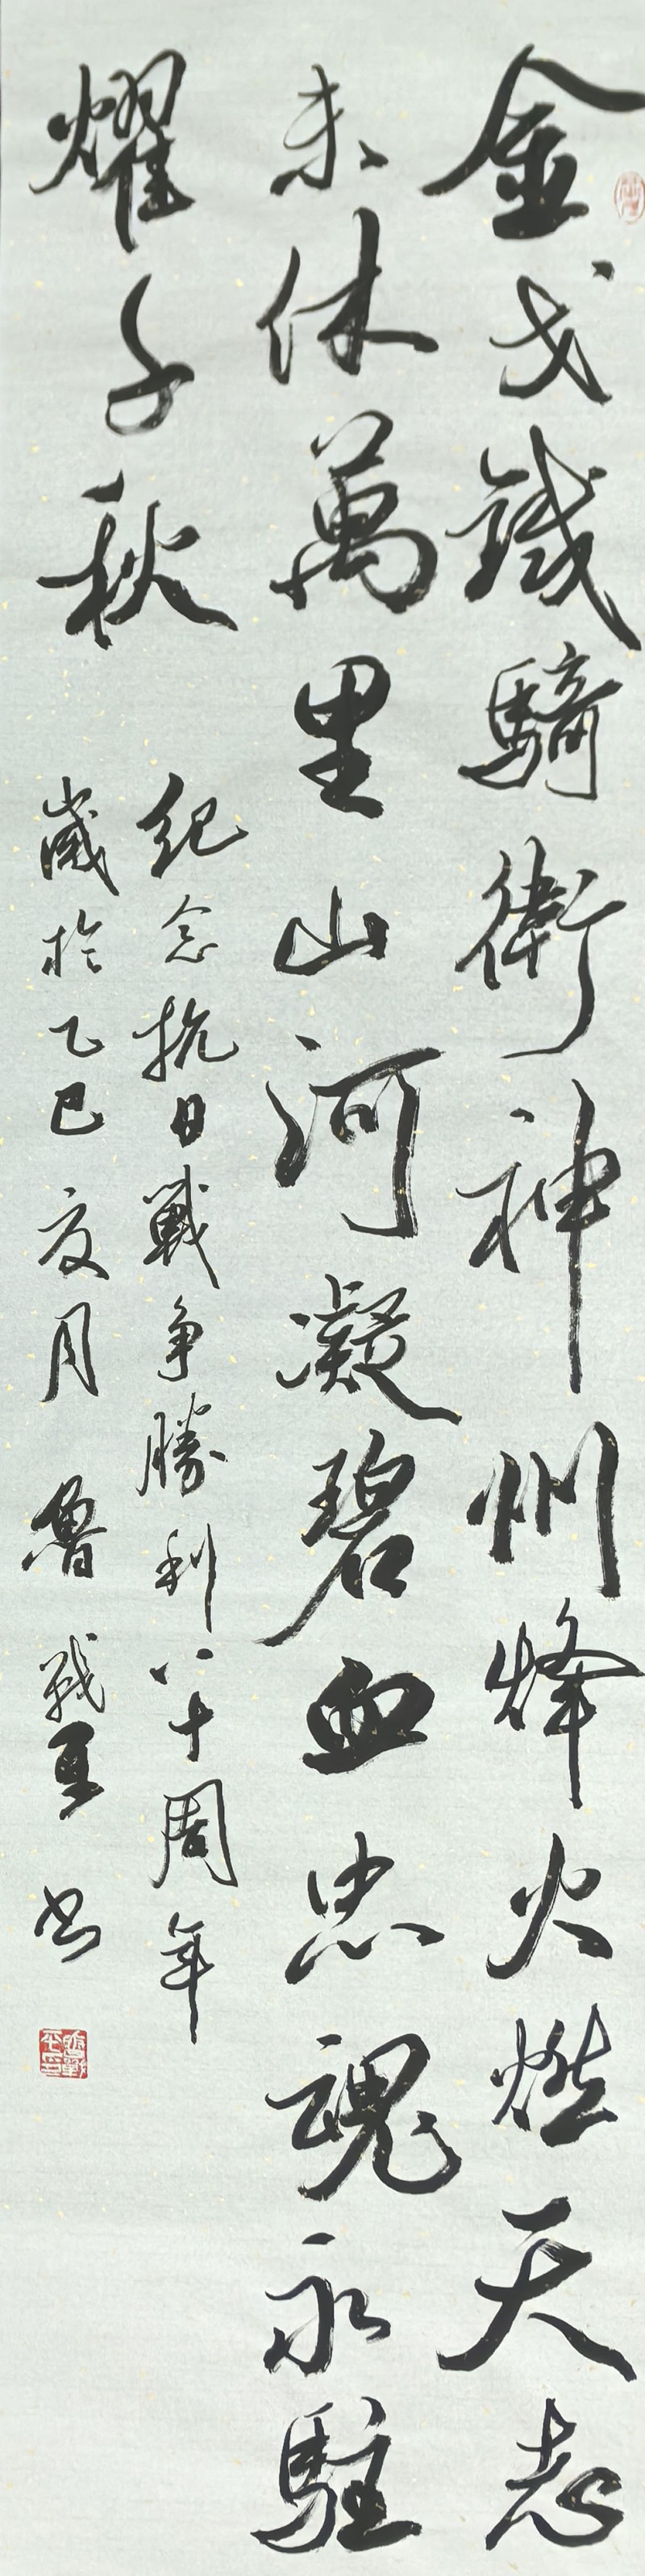 金戈鐵騎衛神州烽火燃天志
未休萬里山河凝碧血忠魂永駐
耀千秋
紀念抗日戰争勝利八十周年
歲於乙巳夏月 魯战平书
魯戰平印